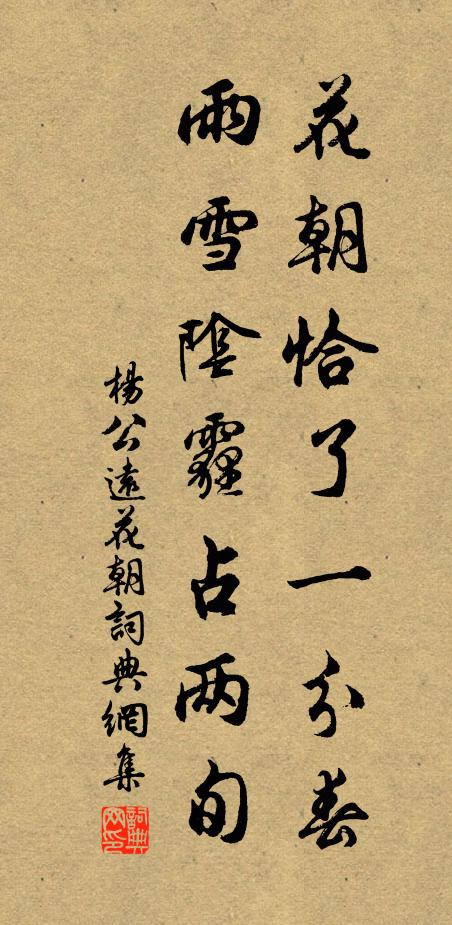 花朝恰了一分春
雨雪陰霾占两旬
楊公遠花朝詞典網集
詞典网印